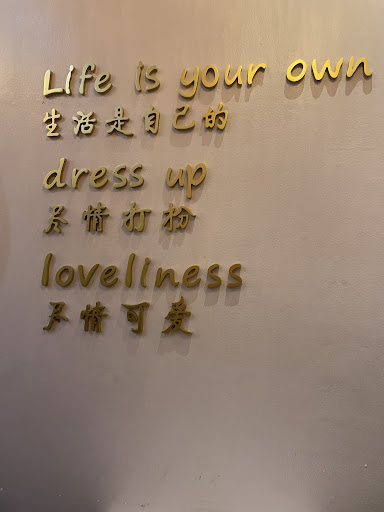 Life is your own
生活是自己的
dress up
尽情打扮
loveliness
尽情可爱